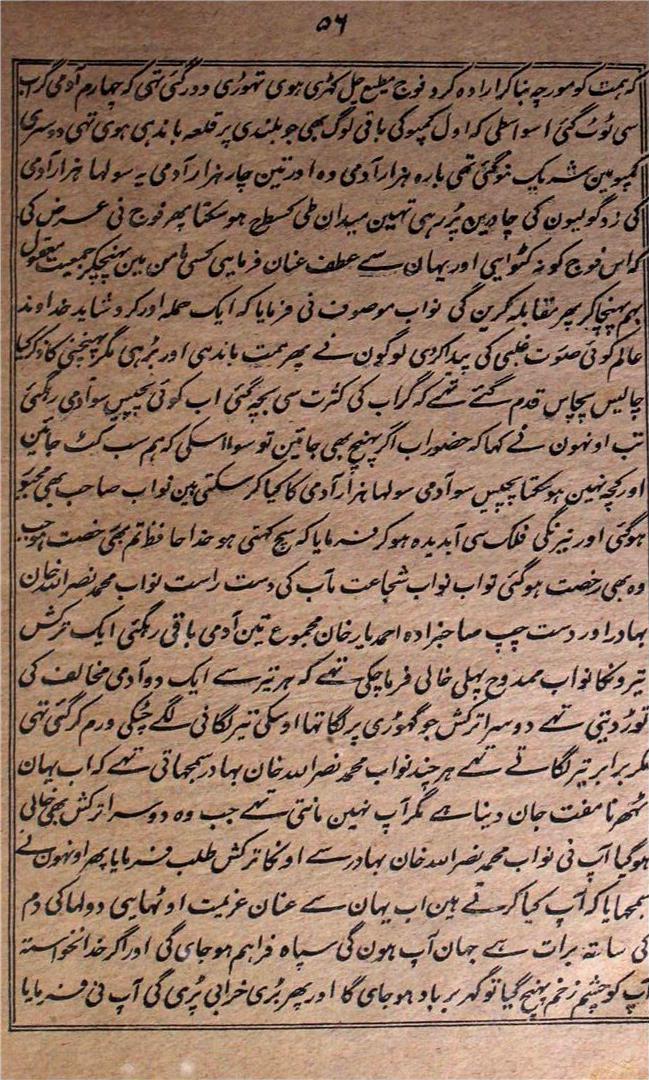 ۵۶
کہ ہمت کو مورچہ بنا کر ارادہ کرو فوج مطیع چل کھڑی ہوی تھوڑی دور گئی تھی کہ چہارم آدمی گراب
سی ٹوٹ گئی اسواسطی کہ اول کمپو کی باقی لوگ بھی جو بلندی پر قلعہ باندہی ہوی تھی دوسری
کمپو مین شریک ہو گئی تھی بارہ ہزار آدمی وہ اور تین چار ہزار آدمی یہ سولہا ہزار آدمی
کی زد گولیون کی چادرین پڑ رہی تہین میدان طی کسطرح ہو سکتا پھر فوج نی عرض کی
کہ اس فوج کو نہ کٹوایی اور یہان سے عطف عنان فرمایی کسی مامن مین پہنچکر جمعیت معقول
بہم پہنچا کر پھر مقابلہ کرین گی نواب موصوف نی فرمایا کہ ایک حملہ اور کرو شاید خداوند
عالم کوئی صورت غلبی کی پیدا کردی لوگون نے پھر ہمت باندہی اور بڑہی مگر پہنچنی کا ذکر کیا
چالیس پچاس قدم گئے تھے کہ گراب کی کثرت سی بچھ گئی اب کوئی پچیس سو آدمی رہگئی
تب اونہون نے کہا کہ حضور اب اگر پہنچ بھی جاتین تو سوا اسکی کہ ہم سب کٹ جائین
اور کچھ نہین ہو سکتا پچیس سو آدمی سولہا ہزار آدمی کا کیا کر سکتی ہین نواب صاحب بھی مجبور
ہو گئی اور نیرنگی فلک سی آبدیدہ ہو کر فرمایا کہ سچ کہتی ہو خدا حافظ تم بھی رخصت ہو جب
وہ بھی رخصت ہو گئی تو اب نواب شجاعت مآب کی دست راست نواب محمد نصراللہ خان
بہادر اور دست چپ صاحبزادہ احمد یار خان مجموع تین آدمی باقی رہگئی ایک ترکش
تیرونکا نواب ممدوح پہلی خالی فرما چکی تھے کہ ہر تیر سے ایک دو آدمی مخالف کی
توڑ دیتی تھے دوسرا ترکش جو گھوڑی پر لگا تھا اوسکی تیر لگانی لگے چٹکی ورم کر گئی تھی
مگر برابر تیر لگاتے تھے ہر چند نواب محمد نصراللہ خان بہادر سمجھاتی تھے کہ اب یہان
ٹھرنا مفت جان دینا ہے مگر آپ نہین مانتی تھے جب وہ دوسرا ترکش بھی خالی
ہو گیا آپ نی نواب محمد نصراللہ خان بہادر سے اونکا ترکش طلب فرمایا پھر اونہون نے
سمجھایا کہ آپ کیا کرتے ہین اب یہان سے عنان عزیمت اوٹھایی دولہا کی دم
کی ساتھ برات ہے جہان آپ ہون گی سپاہ فراہم ہو جای گی اور اگر خدانخواستہ
آپ کو چشم زخم پہنچ گیا تو گھر برباد ہو جای گا اور پھر بڑی خرابی پڑی گی آپ نی فرمایا